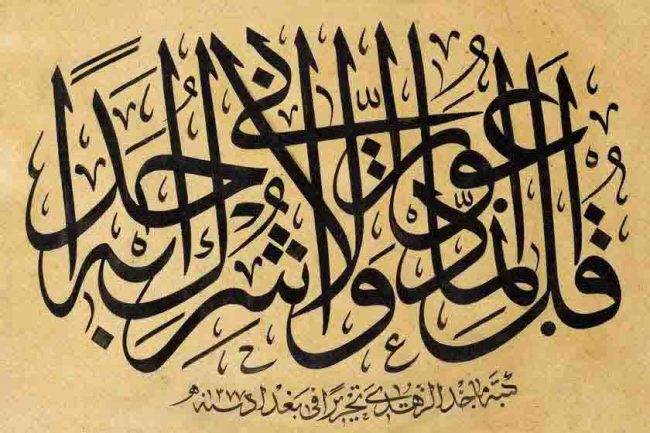 قُلْ إِنَّمَا أَدْعُو رَبِّي وَلَا أُشْرِكُ بِهِ أَحَدًا
كتبه ماجد الزهدي تحريرًا في بغداد سنة ١٣٧٧ هـ